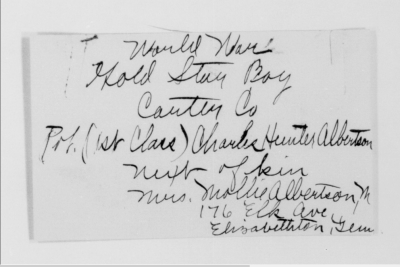 World War I
Gold Star Boy
Carter Co
Pvt. (1st Class) Charles Hunter Albertson
next of kin
Mrs. Mollie Albertson, M
176 Elk Ave,
Elizabethton, Tenn